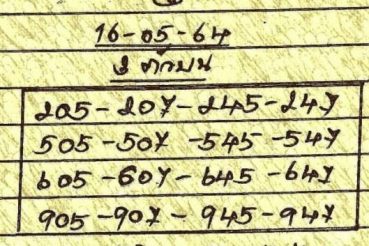 16-05-64
3 ตัวบน
205-207-245-247
505-507-545-547
605-607-645-647
905-907-945-947